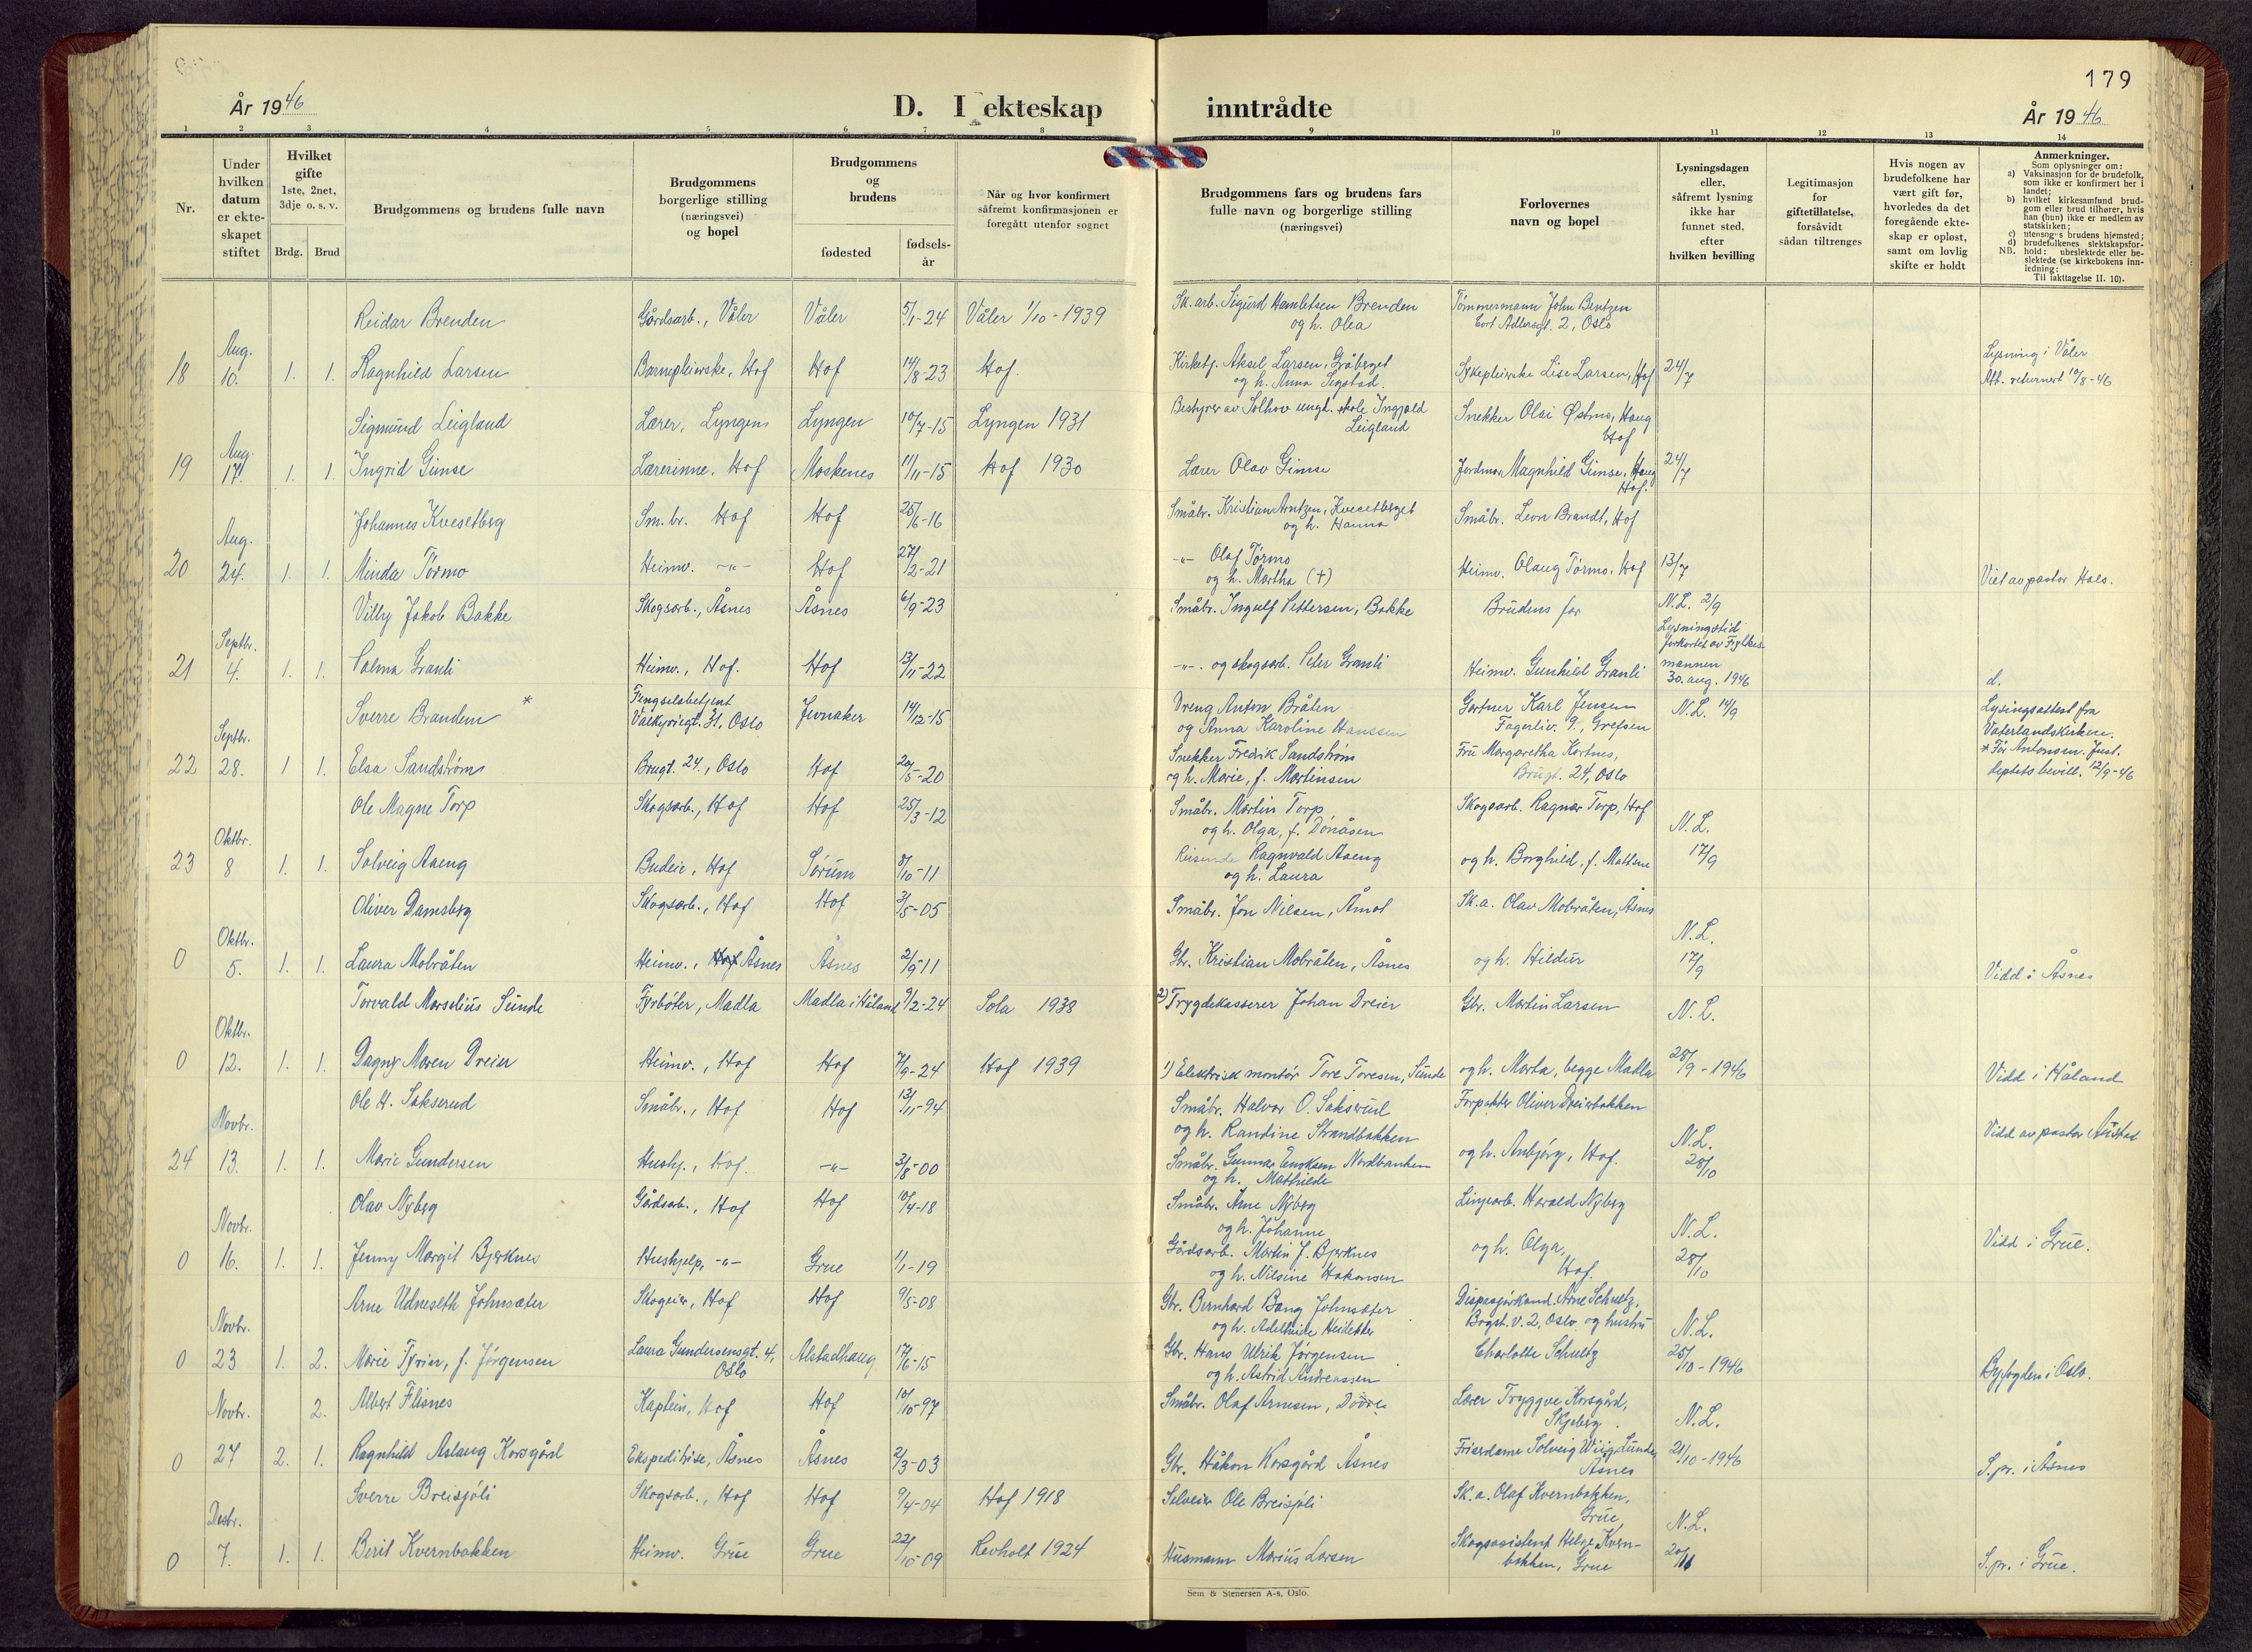 179
År 1946
D. I ekteskap inntrådte
År 1946
1 2 3 4 5 6 7 8 9 10 11 12 13 14
Nr.
Under
hvilken
datum
er ekte-
skapet
stiftet
Hvilket
gifte
1ste, 2net,
3dje o. s. v.
Brdg. Brud
Brudgommens og brudens fulle navn
Brudgommens
borgerlige stilling
(næringsvei)
og bopel
Brudgommens
og
brudens
fødested
fødsels-
år
Når og hvor konfirmert
såfremt konfirmasjonen er
foregått utenfor sognet
Brudgommens fars og brudens fars
fulle navn og borgerlige stilling
(næringsvei)
Forlovernes
navn og bopel
Lysningsdagen
eller,
såfremt lysning
ikke har
funnet sted,
efter
hvilken bevilling
Legitimasjon
for
giftetillatelse,
forsåvidt
sådan tiltrenges
Hvis nogen av
brudefolkene har
vært gift før,
hvorledes da det
foregående ekte-
skap er opløst,
samt om lovlig
skifte er holdt
Anmerkninger.
Som oplysninger om:
a) Vaksinasjon for de brudefolk,
som ikke er konfirmert her i
landet;
b) hvilket kirkesamfund brud-
gom eller brud tilhører, hvis
han (hun) ikke er medlem av
statskirken;
c) utensogns brudens hjemsted;
d) brudefolkenes slektskapsfor-
NB. hold: ubeslektede eller be-
slektede (se kirkebokens inn-
ledning:
Til iakttagelse II. 10).
Reidar Brenden Gårdsarb., Våler Våler 5/1-24 Våler 1/10-1939 Sk. arb. Sigurd Hamletsen Brenden Tømmermann John Bentzen
og h. Olea Cort Adlersgt. 2, Oslo
18 Aug. 10. 1. 1. Ragnhild Larsen Barnepleierske, Hof Hof 14/8-23 Hof. Kirketj. Aksel Larsen, Gråberget Sykepleierske Lise Larsen, Hof 24/7 Lysning i Våler
og h. Anna Segstad. Att. returnert 10/8-46
Sigmund Leigland Lærer, Lyngen Lyngen 10/7-15 Lyngen 1931 Bestyrer av Solhov ungd. skole Ingjald Snekker Olai Østmo, Haug
Leigland Hof
19 Aug. 17. 1. 1. Ingrid Gimse Lærerinne. Hof Moskenes 11/11-15 Hof 1930 Lærer Olav Gimse Jordmor Magnhild Gimse, Haug 24/7
Hof.
Johannes Kvesetberg Sm. br. Hof Hof 25/6-16 Småbr. Kristian Arntzen, Kvesetberget Småbr. Leon Brandt, Hof
og h. Hanna
20 Aug. 24. 1. 1. Minda Tørmo Heimv. -"- Hof 27/2-21 -"- Olaf Tørmo Heimv. Olaug Tørmo. Hof 13/7
og h. Martha (+) Viet av pastor Hals.
Villy Jakob Bakke Skogsarb., Åsnes Åsnes 6/9-23 Småbr. Ingulf Pettersen, Bakke Brudens far N.L. 2/9
Lysningstid
forkortet av Fylkes-
21 Septbr. 4. 1. 1. Palma Granli Heimv., Hof. Hof 13/11-22 -"-. og skogsarb. Peter Granli Heimv. Gunhild Granli mannen
30. aug. 1946 d.
Sverre Branden * Fengselsbetjent
Valkyriegt. 31, Oslo Jevnaker 14/12-15 Dreng Anton Bråten Gartner Karl Jensen N.L. 14/9 Lysingsattest fra
og Anna Karoline Hanssen Fagerliv. 9, Grefsen Vaterlandskirken.
22 Septbr. 28. 1 1. Elsa Sandstrøm Brugt. 24., Oslo Hof 20/5-20 Snekker Fredrik Sandstrøm Fru Margaretha Kortnes, * Før Antonsen. Just.
og h. Marie, f. Martinsen Brugt. 24, Oslo deptets bevill. 12/9-46
Ole Magne Torp Skogsarb., Hof Hof 25/3-12 Småbr. Martin Torp Skogsarb. Ragnar Torp, Hof
og h. Olga, f. Dønåsen N.L.
23 Oktbr. 8 1. 1. Solveig Aaeng Budeie, Hof Sørum 8/10-11 Reisende Ragnvald Aaeng og h. Borghild, f. Mattsson 17/9
og h. Laura
Oliver Damsberg Skogsarb., Hof Hof 3/5-05 Småbr. Jon Nilsen, Åmot Sk. a. Olav Mobråten, Åsnes
N.L.
0 Oktbr. 5. 1. 1. Laura Mobråten Heimv., Hof Åsnes Åsnes 2/9-11 Gbr. Kristian Mobråten, Åsnes og h. Hildur 17/9 Vidd i Åsnes
Torvald Morselius Sunde Fyrbøter, Madla Madla i Håland 9/2-24 Sola 1938 2) Trygdekasserer Johan Dreier Gbr. Martin Larsen N.L.
0 Oktbr. 12. 1. 1. Dagny Maren Dreier Heimv., Hof Hof 7/9-24 Hof 1939 1) Elektrisk montør Tore Toresen, Sunde og h. Marta, begge Madla 28/9-1946 Vidd i Håland
Ole H. Sakserud Småbr., Hof Hof 13/11-94 Småbr. Halvor O. Sakserud Forpakter Oliver Dreierbakken
og h. Randine Strandbakken N.L. Vidd av pastor
24 Novbr. 13. 1. 1. Marie Gundersen Hushj., Hof. -"- 3/8-00 Småbr. Gunnar Eriksen Nordbanken og h. Anbjørg, Hof. 28/10
og h. Mathilde
Olav Nyberg Gårdsarb., Hof Hof 10/4-18 Småbr. Arne Nyberg Linjearb. Harald Nyberg
og h. Johanne N.L.
0 Novbr. 16. 1. 1. Jenny Margit Bjerknes Hushjelp, -"- Grue 1/1-19 Gårdsarb. Martin J. Bjerknes og h. Olga, 28/10 Vidd i Grue.
og h. Nilsine Hakonsen Hof.
Arne Udneseth Johnsæter Skogeier, Hof Hof 9/5-08 Gbr. Bernhard Bang Johnsæter Dispasjørkand. Arne Schultz,
og h. Adelheide Heidekker Bogst. v. 2, Oslo og hustru N.L.
0 Novbr. 23 1. 2. Marie Tyrier, f. Jørgensen Laura Gundersensgt. 4, Oslo Alstadhaug 17/6-15 Gbr. Hans Ulrik Jørgensen Charlotte Schultz 25/10-1946 Byfogden i Oslo.
og h. Astrid Andreassen
2. Albert Flisnes Kaptein, Hof Hof 10/10-97 Småbr. Olaf Arnesen, Dovre Lærer Tryggve Korsgård,
Skjeberg. N.L.
0 Novbr. 27 2. 1. Ragnhild Aslaug Korsgård Ekspeditrise, Åsnes Åsnes 2/3-03 Gbr. Håkon Korsgård Åsnes Frisørdame Solveig Wiig Lunde, 21/10-1946
Åsnes S.pr. i Åsnes
Sverre Breisjøli Skogsarb., Hof Hof 9/4-04 Hof 1918 Selveier Ole Breisjøli Sk. a. Olaf Kvernbakken,
Grue, N.L.
0 Desbr. 7. 1. 1. Berit Kvernbakken Heimv. Grue Grue 22/10-09 Revholt 1924 Husmann Marius Larsen Skogsassistent Helge Kvern- 20/11
bakken, Grue S.pr. i Grue.
Sem & Stenersen A-s, Oslo.